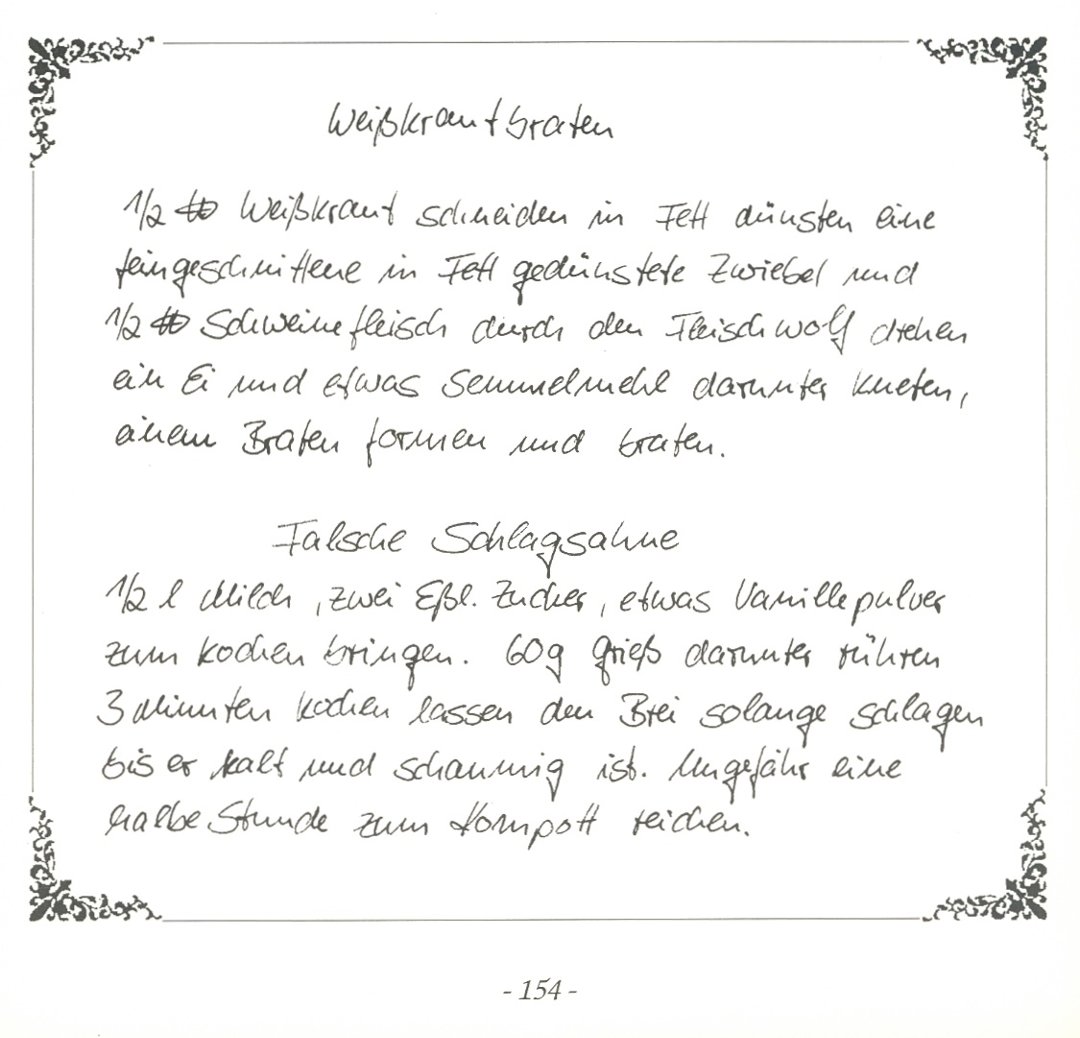 Weißkrautbraten
1/2 ℔ Weißkraut schneiden in Fett dünsten eine
feingeschnittene in Fett gedünstete Zwiebel und
1/2 ℔ Schweinefleisch durch den Fleischwolf drehen
ein Ei und etwas Semmelmehl darunter kneten,
einem Braten formen und braten.
Falsche Schlagsahne
1/2 l Milch, zwei Eßl. Zucker, etwas Vanillepulver
zum kochen bringen. 60g grieß darunter rühren
3 Minuten kochen lassen den Brei solange schlagen
bis er kalt und schaumig ist. Ungefähr eine
halbe Stunde zum Kompott reichen.
- 154 -